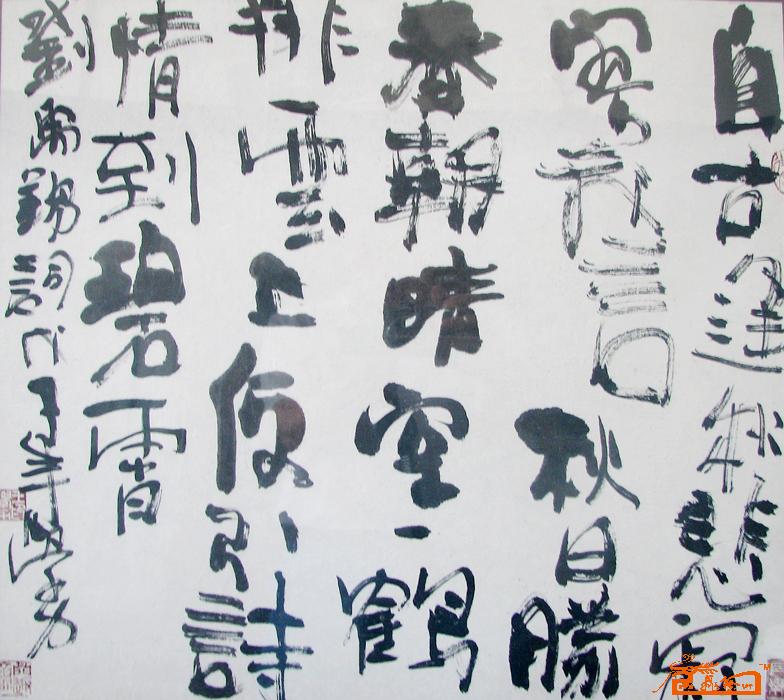 自古逢秋悲寂
寥我言秋日勝
春朝晴空一鶴
排雲上便引詩
情到碧霄
劉禹錫詞